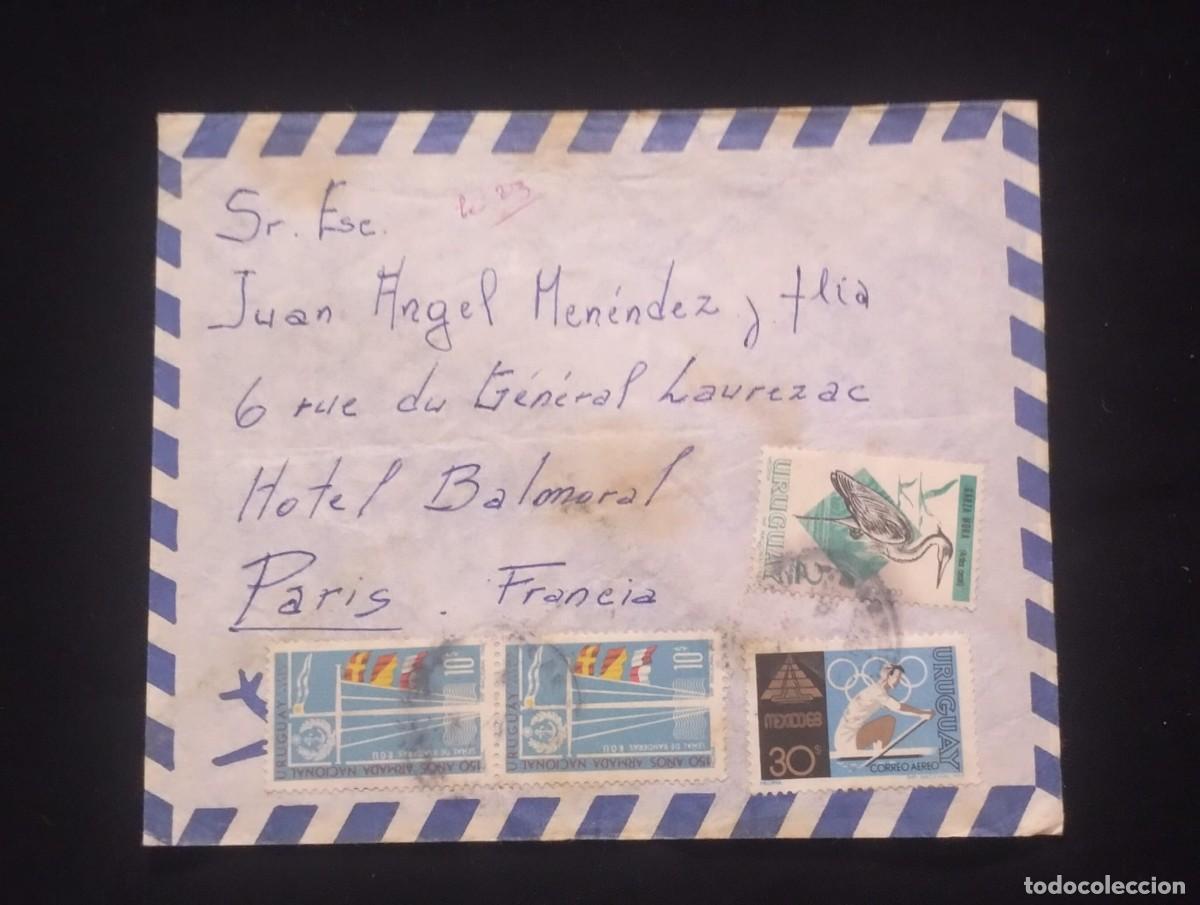 Sr. Esc.
Juan Angel Menéndez y flia
6 rue du Général Laurezac
Hotel Balmoral
Paris. Francia
URUGUAY
GARZA MORA
URUGUAY
10$
150 AÑOS ARMADA NACIONAL
SEÑAL DE BANDERAS R.O.U.
URUGUAY
10$
150 AÑOS ARMADA NACIONAL
SEÑAL DE BANDERAS R.O.U.
URUGUAY
MEXICO68
30$
CORREO AEREO
todocoleccion